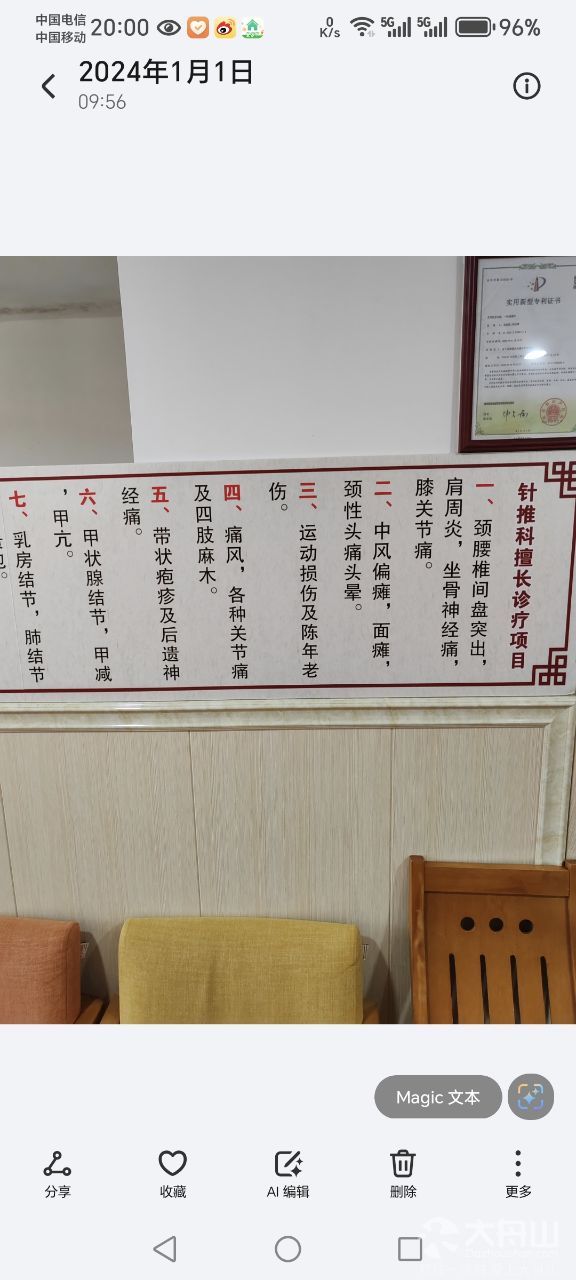 中国电信
中国移动
20:00
0
K/s
5G
5G
96%
2024年1月1日
09:56
实用新型专利证书
针推科擅长诊疗项目
一、颈腰椎间盘突出，
肩周炎，坐骨神经痛，
膝关节痛。
二、中风偏瘫，面瘫，
颈性头痛头晕。
三、运动损伤及陈年老
伤。
四、痛风，各种关节痛
及四肢麻木。
五、带状疱疹及后遗神
经痛。
六、甲状腺结节，甲减
，甲亢。
七、乳房结节，肺结节
包。
Magic 文本
分享
收藏
AI 编辑
删除
更多
大舟山
Dazhoushan.com